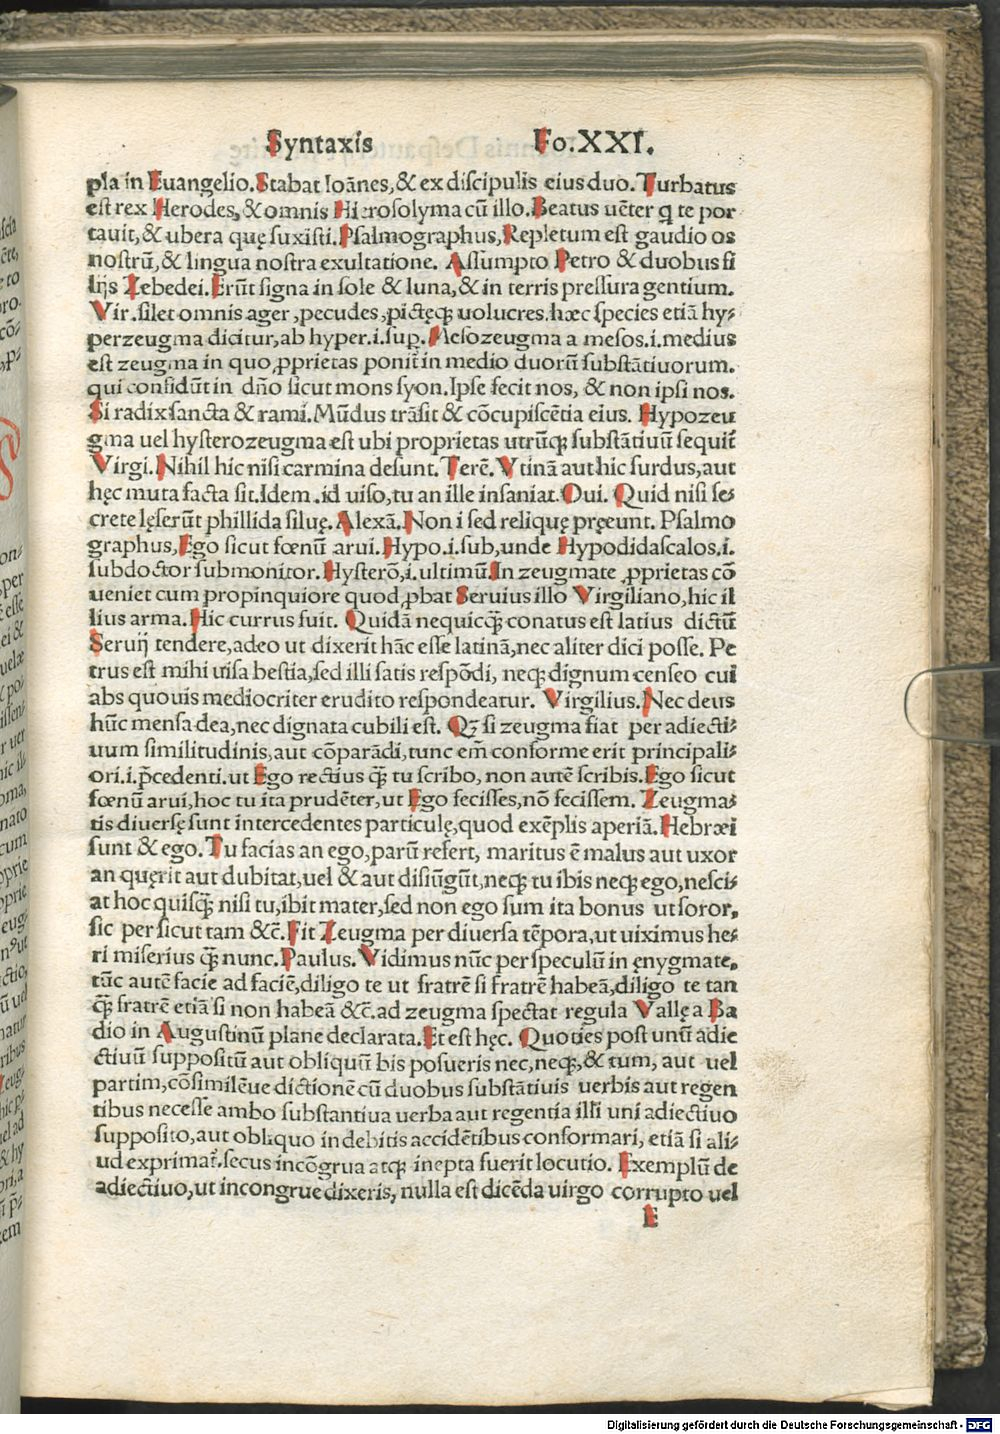 Syntaxis Fo.XXI.
pla in Euangelio. Stabat Ioānes, & ex discipulis eius duo. Turbatus
est rex Herodes, & omnis Hierosolyma cū illo. Beatus uēter q te por
tauit, & ubera quę suxisti. Psalmographus, Repletum est gaudio os
nostrū, & lingua nostra exultatione. Assumpto Petro & duobus fi
lijs Zebedei. Erūt signa in sole & luna, & in terris pressura gentium.
Vir. silet omnis ager, pecudes, pictęq; uolucres. hæc species etiā hy-
perzeugma dicitur, ab hyper .i. sup. Mesozeugma a mesos .i. medius
est zeugma in quo ꝓprietas ponit̄ in medio duorū substātiuorum.
qui confidūt in dño sicut mons syon. Ipse fecit nos, & non ipsi nos.
Si radix sancta & rami. Mūdus trāsit & cōcupiscētia eius. Hypozeu
gma uel hysterozeugma est ubi proprietas utrūq; substātiuū sequit̄
Virgi. Nihil hic nisi carmina desunt. Terē. Vtinā aut hic surdus, aut
hęc muta facta sit. Idem. id uiso, tu an ille insaniat. Oui. Quid nisi se-
crete lęserūt phillida siluę. Alexā. Non i sed reliquę pręeunt. Psalmo
graphus, Ego sicut fœnū arui. Hypo .i. sub, unde Hypodidascalos .i.
subdoctor submonitor. Hysterō, i. ultimū. In zeugmate ꝓprietas cō
ueniet cum propinquiore quod ꝓbat Seruius illo Virgiliano, hic il
lius arma. Hic currus fuit. Quidā nequicq̄; conatus est latius dictū
Seruij tendere, adeo ut dixerit hāc esse latinā, nec aliter dici posse. Pe
trus est mihi uisa bestia, sed illi satis respōdi, neq; dignum censeo cui
abs quouis mediocriter erudito respondeatur. Virgilius. Nec deus
hūc mensa dea, nec dignata cubili est. Qꝫ si zeugma fiat per adiecti-
uum similitudinis, aut cōparādi, tunc em̄ conforme erit principali-
ori .i. p̄cedenti. ut Ego rectius q̄; tu scribo, non autē scribis. Ego sicut
fœnū arui, hoc tu ita prudēter, ut Ego fecisses, nō fecissem. Zeugma-
tis diuersę sunt intercedentes particulę, quod exēplis aperiā. Hebræi
sunt & ego. Tu facias an ego, parū refert, maritus ē malus aut uxor
an quęrit aut dubitat, uel & aut disiūgūt, neq; tu ibis neq; ego, nesci-
at hoc quisq̄; nisi tu, ibit mater, sed non ego sum ita bonus ut soror,
sic per sicut tam &c̄. Fit Zeugma per diuersa tēpora, ut uiximus he-
ri miserius q̄; nunc. Paulus. Vidimus nūc per speculū in ęnygmate,
tūc autē facie ad faciē, diligo te ut fratrē si fratrē habeā, diligo te tan
q̄; fratrē etiā si non habeā &c̄. ad zeugma spectat regula Vallę a Ba
dio in Augustinū plane declarata. Et est hęc. Quoties post unū adie
ctiuū suppositū aut obliquū bis posueris nec, neq;, & tum, aut uel
partim, cōsimilēue dictionē cū duobus substātiuis uerbis aut regen
tibus necesse ambo substantiua uerba aut regentia illi uni adiectiuo
supposito, aut obliquo in debitis accidētibus conformari, etiā si ali-
ud exprimat̄. secus incōgrua atq; inepta fuerit locutio. Exemplū de
adiectiuo, ut incongrue dixeris, nulla est dicēda uirgo corrupto uel
E
Digitalisierung gefördert durch die Deutsche Forschungsgemeinschaft - DFG